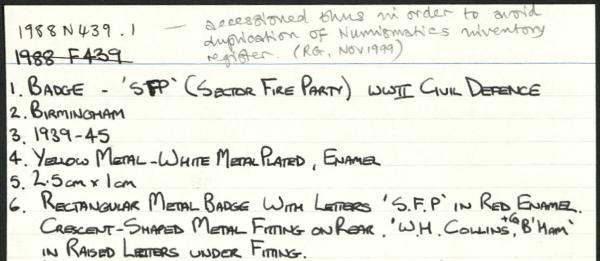 1988 N 439 . 1 — accessioned thus in order to avoid
duplication of Numismatics inventory
register. (RG, NOV 1999)
1988 F 439
1. BADGE - 'SFP' (SECTOR FIRE PARTY) WWII CIVIL DEFENCE
2. BIRMINGHAM
3. 1939-45
4. YELLOW METAL-WHITE METAL PLATED, ENAMEL
5. 2.5cm x 1cm
6. RECTANGULAR METAL BADGE WITH LETTERS 'S.F.P' IN RED ENAMEL.
CRESCENT-SHAPED METAL FITTING ON REAR. 'W.H. COLLINS, +Co B'HAM'
IN RAISED LETTERS UNDER FITTING.